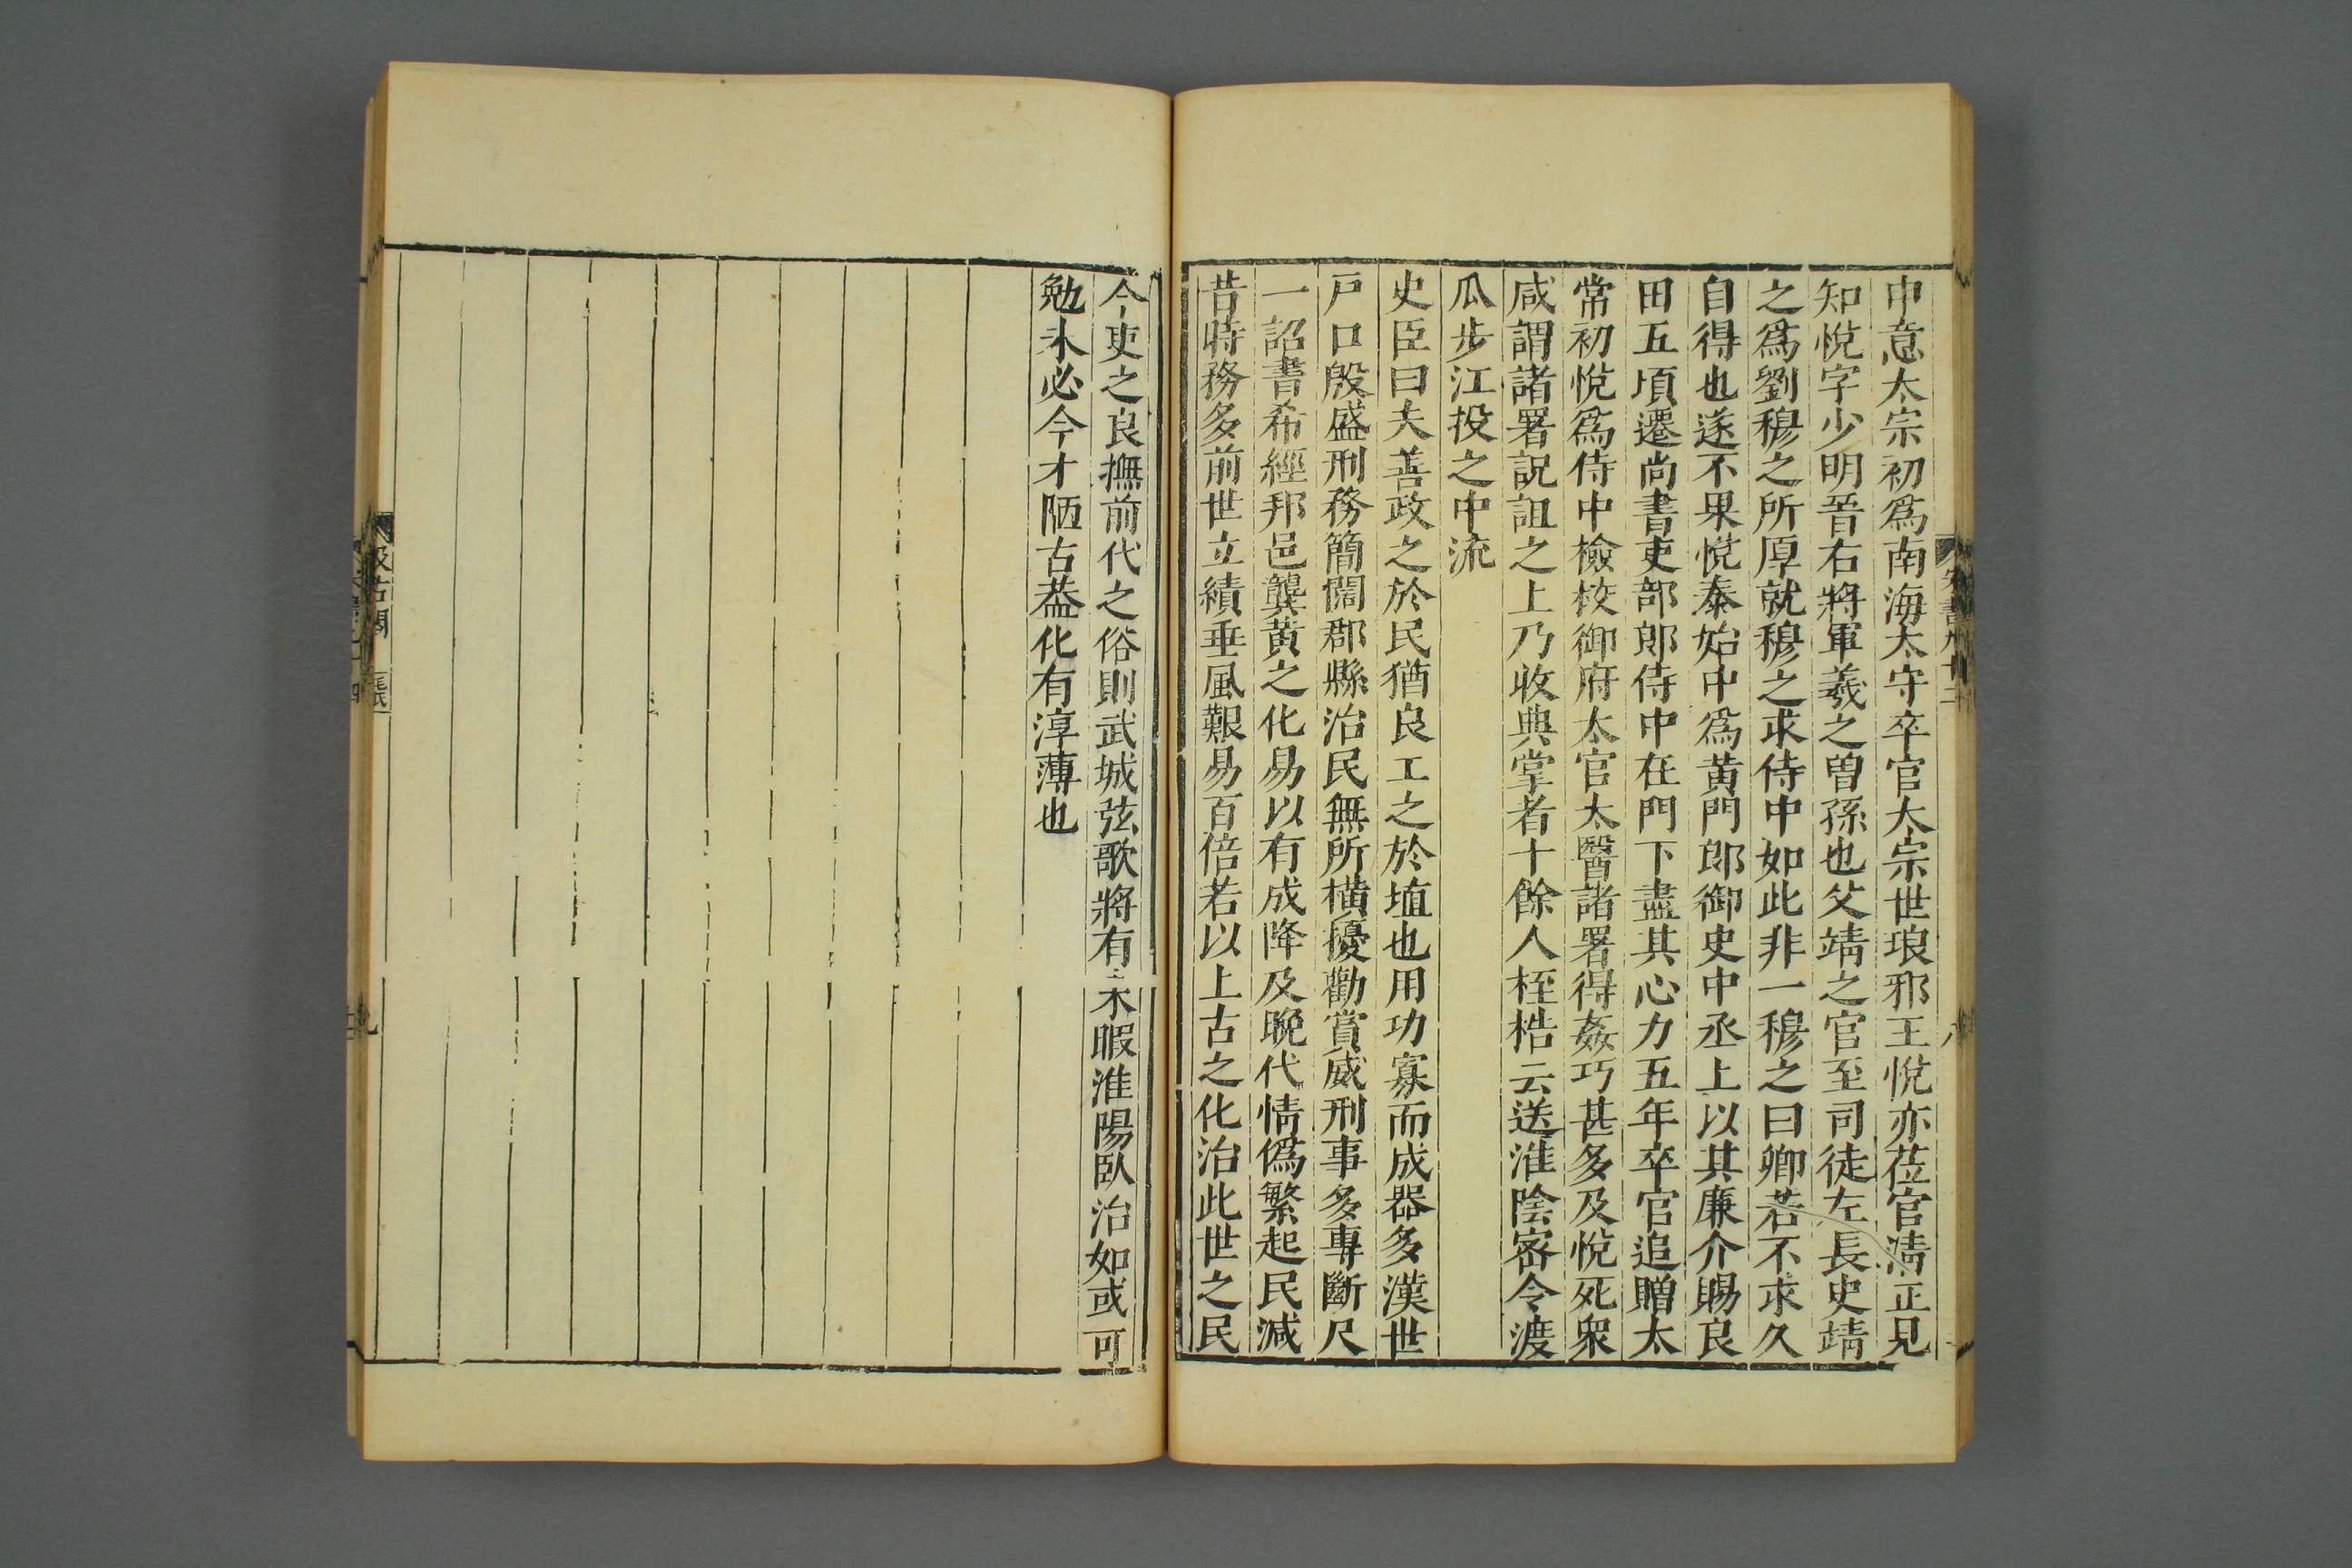 中意太宗初爲南海太守卒官太宗世琅邪王悅亦莅官淸正見
知悅字少明晉右將軍羲之曾孫也父靖之官至司徒左長史靖
之爲劉穆之所厚就穆之求侍中如此非一穆之曰卿若不求久
自得也遂不果悅泰始中爲黃門郎御史中丞上以其廉介賜良
田五頃遷尚書吏部郎侍中在門下盡其心力五年卒官追贈太
常初悅爲侍中檢校御府太官太醫諸署得姦巧甚多及悅死衆
咸謂諸署說詛之上乃收典掌者十餘人桎梏云送淮陰密令渡
瓜步江投之中流
史臣曰夫善政之於民猶良工之於埴也用功寡而成器多漢世
戸口殷盛刑務簡闊郡縣治民無所橫擾勸賞威刑事多專斷尺
一詔書希經邦邑龔黃之化易以有成降及晚代情僞繁起民減
昔時務多前世立績垂風艱易百倍若以上古之化治此世之民
今吏之良撫前代之俗則武城弦歌將有未暇淮陽臥治如或可
勉未必今才陋古葢化有淳薄也